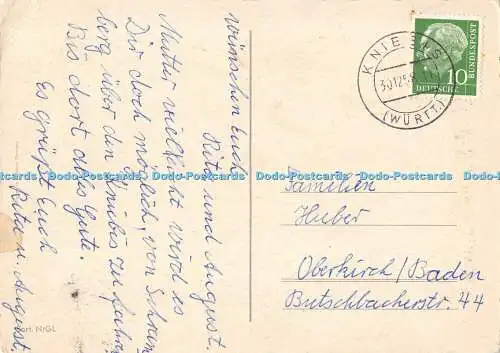 wünschen Euch
Rita und August.
Mutter vielleicht wird es
Dir doch möglich, von Schram
berg über den Kniebis zu fahren
Bis dort alles Gute.
Es grüßt Euch
Rita u. August.
KNIEBIS
30.12.5
(WÜRTT.)
10
DEUTSCHE
BUNDESPOST
Familien
Huber
Oberkirch/Baden
Butschbacherstr. 44
Dodo-Postcards Dodo-Postcards Dodo-Postcards Dodo-Postcards Dodo-Postcards